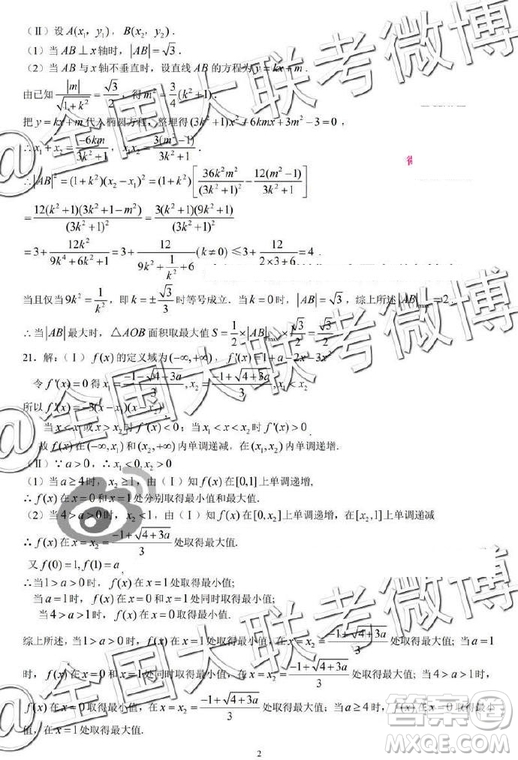 (Ⅱ) 设 A(x₁, y₁), B(x₂, y₂).
(1) 当 AB ⊥ x 轴时, |AB| = √3.
(2) 当 AB 与 x 轴不垂直时, 设直线 AB 的方程为 y = kx + m.
由已知 |m|/√(1+k²) = √3/2, 得 m² = 3/4(k²+1).
把 y = kx + m 代入椭圆方程, 整理得 (3k²+1)x² + 6kmx + 3m² − 3 = 0,
∴ x₁ + x₂ = −6km/(3k²+1), x₁x₂ = 3(m²−1)/(3k²+1).
∴ |AB|² = (1+k²)(x₂−x₁)² = (1+k²)[36k²m²/(3k²+1)² − 12(m²−1)/(3k²+1)]
= 12(k²+1)(3k²+1−m²)/(3k²+1)² = 3(k²+1)(9k²+1)/(3k²+1)²
= 3 + 12k²/(9k⁴+6k²+1) = 3 + 12/(9k²+1/k²+6) (k≠0) ≤ 3 + 12/(2×3+6) = 4.
当且仅当 9k² = 1/k², 即 k = ±√3/3 时等号成立. 当 k = 0 时, |AB| = √3, 综上所述 |AB|max = 2.
∴ 当 |AB| 最大时, △AOB 面积取最大值 S = 1/2 × |AB|max × √3/2 = √3/2
21. 解: (Ⅰ) f(x) 的定义域为 (−∞,+∞), f′(x) = 1 + a − 2x − 3x²
令 f′(x) = 0 得 x₁ = (−1−√(4+3a))/3, x₂ = (−1+√(4+3a))/3, x₁ < x₂
所以 f′(x) = −3(x−x₁)(x−x₂)
当 x < x₁ 或 x > x₂ 时 f′(x) < 0; 当 x₁ < x < x₂ 时 f′(x) > 0
故 f(x) 在 (−∞,x₁) 和 (x₂,+∞) 内单调递减, 在 (x₁,x₂) 内单调递增.
(Ⅱ) ∵ a > 0, ∴ x₁ < 0, x₂ > 0
(1) 当 a ≥ 4 时, x₂ ≥ 1, 由 (Ⅰ) 知 f(x) 在 [0,1] 上单调递增,
∴ f(x) 在 x = 0 和 x = 1 处分别取得最小值和最大值.
(2) 当 4 > a > 0 时, x₂ < 1, 由 (Ⅰ) 知 f(x) 在 [0,x₂] 上单调递增, 在 [x₂,1] 上单调递减
∴ f(x) 在 x = x₂ = (−1+√(4+3a))/3 处取得最大值.
又 f(0) = 1, f(1) = a
∴ 当 1 > a > 0 时, f(x) 在 x = 1 处取得最小值;
当 a = 1 时, f(x) 在 x = 0 和 x = 1 处取得最小值;
当 4 > a > 1 时, f(x) 在 x = 0 处取得最小值.
综上所述, 当 1 > a > 0 时, f(x) 在 x = 1 处取得最小值, 在 x = x₂ = (−1+√(4+3a))/3 处取得最大值; 当 a = 1
时, f(x) 在 x = 0 和 x = 1 处同时取得最小值, 在 x = x₂ = (−1+√(4+3a))/3 处取得最大值; 当 4 > a > 1 时,
f(x) 在 x = 0 处取得最小值, 在 x = x₂ = (−1+√(4+3a))/3 处取得最大值; 当 a ≥ 4 时, f(x) 在 x = 0 处取得最小
值, 在 x = 1 处取得最大值.
2
@全国大联考微博
@全国大联考微博
@全国大联考微博
答案圈
MXQE.COM